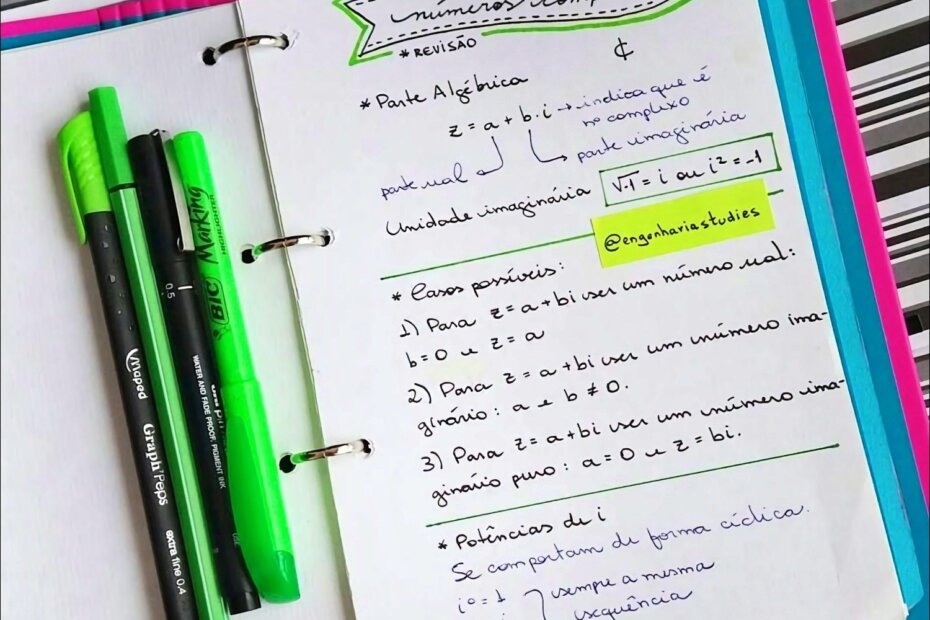 números comp
* REVISÃO
₵
* Parte Algébrica
z = a + b.i → indica que é
nº complexo
parte real
parte imaginária
Unidade imaginária
√-1 = i ou i² = -1
@engenhariastudies
* Casos possíveis:
1) Para z = a + bi ser um número real:
b = 0 e z = a
2) Para z = a + bi ser um número ima-
ginário: a e b ≠ 0.
3) Para z = a + bi ser um número ima-
ginário puro: a = 0 e z = bi.
* Potências de i
Se comportam de forma cíclica.
i⁰ = 1
sempre a mesma
sequência
Maped
Graph'Peps
extra fine 0.4
0.5
WATER AND FADE PROOF, PIGMENT INK
BIC Marking
HIGHLIGHTER